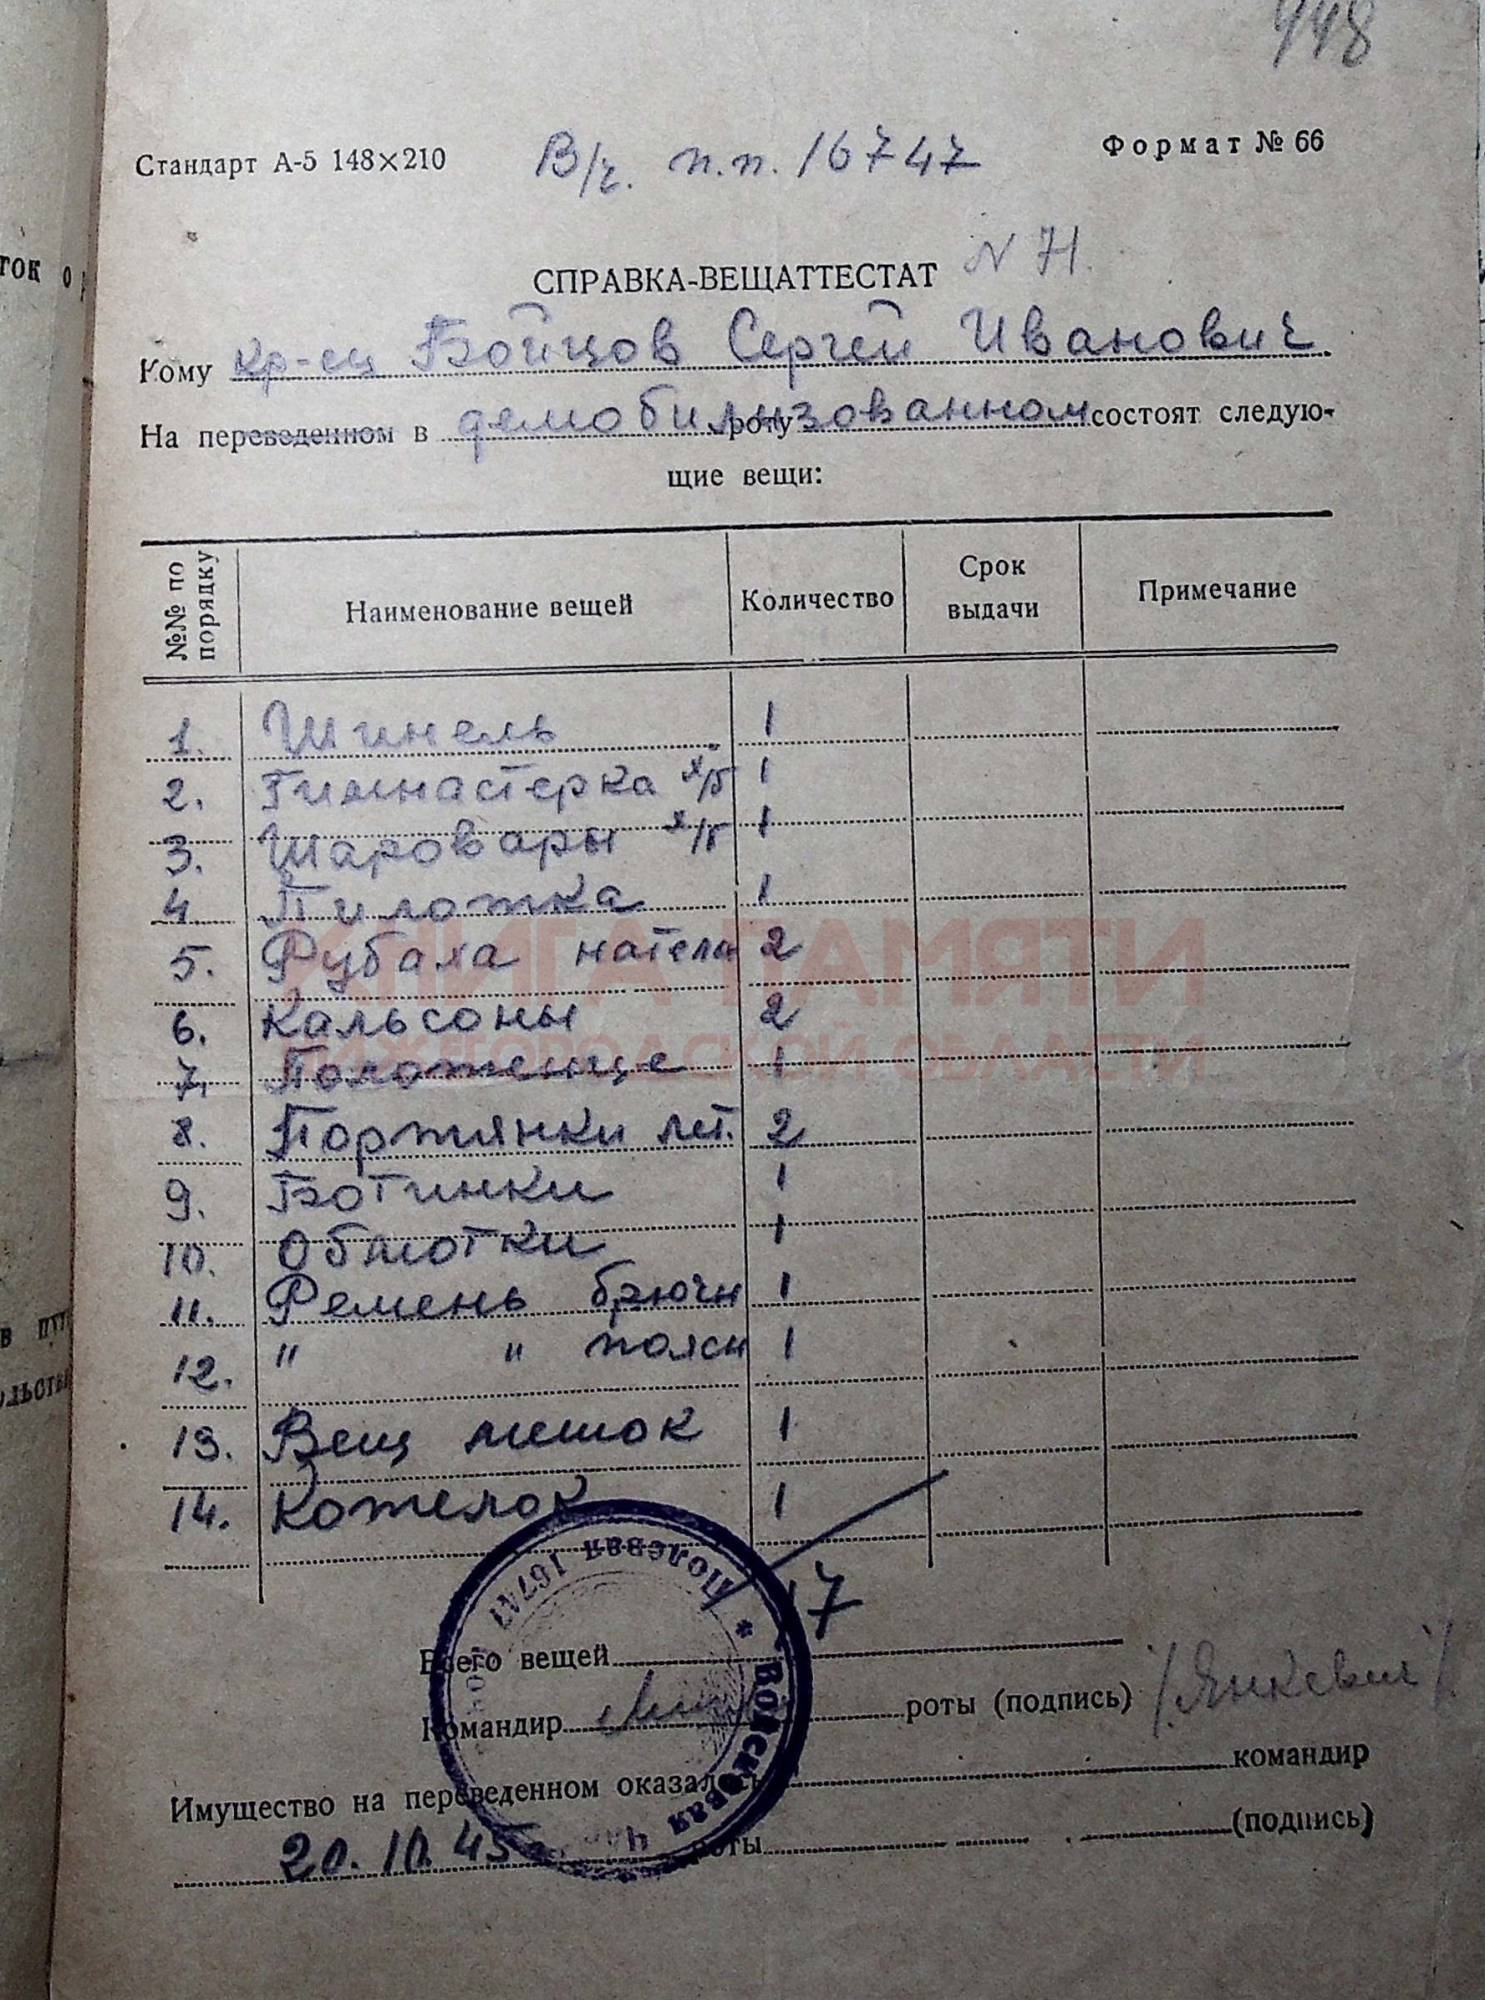 448
Стандарт А-5 148×210 В/ч. п.п. 16747 Формат № 66
СПРАВКА-ВЕЩАТТЕСТАТ N 71.
Кому кр-ец Бойцов Сергей Иванович
На переведенном в демобилизованном роту состоят следую-
щие вещи:
№№ по порядку Наименование вещей Количество Срок выдачи Примечание
1. Шинель 1
2. Гимнастерка х/б 1
3. Шаровары х/б 1
4. Пилотка 1
5. Рубаха нательн 2
КНИГА ПАМЯТИ
6. Кальсоны 2
НИЖЕГОРОДСКОЙ ОБЛАСТИ
7. Полотенце 1
8. Портянки лет. 2
9. Ботинки 1
10. Обмотки 1
11. Ремень брючн 1
12. " " поясн 1
13. Вещ мешок 1
14. Котелок 1
Войсковая часть * Полевая почта 16747
Всего вещей 17
Командир роты (подпись) /Янкевич/
Имущество на переведенном оказалось командир
20.10.45 роты (подпись)
ток о
в пут
ольств